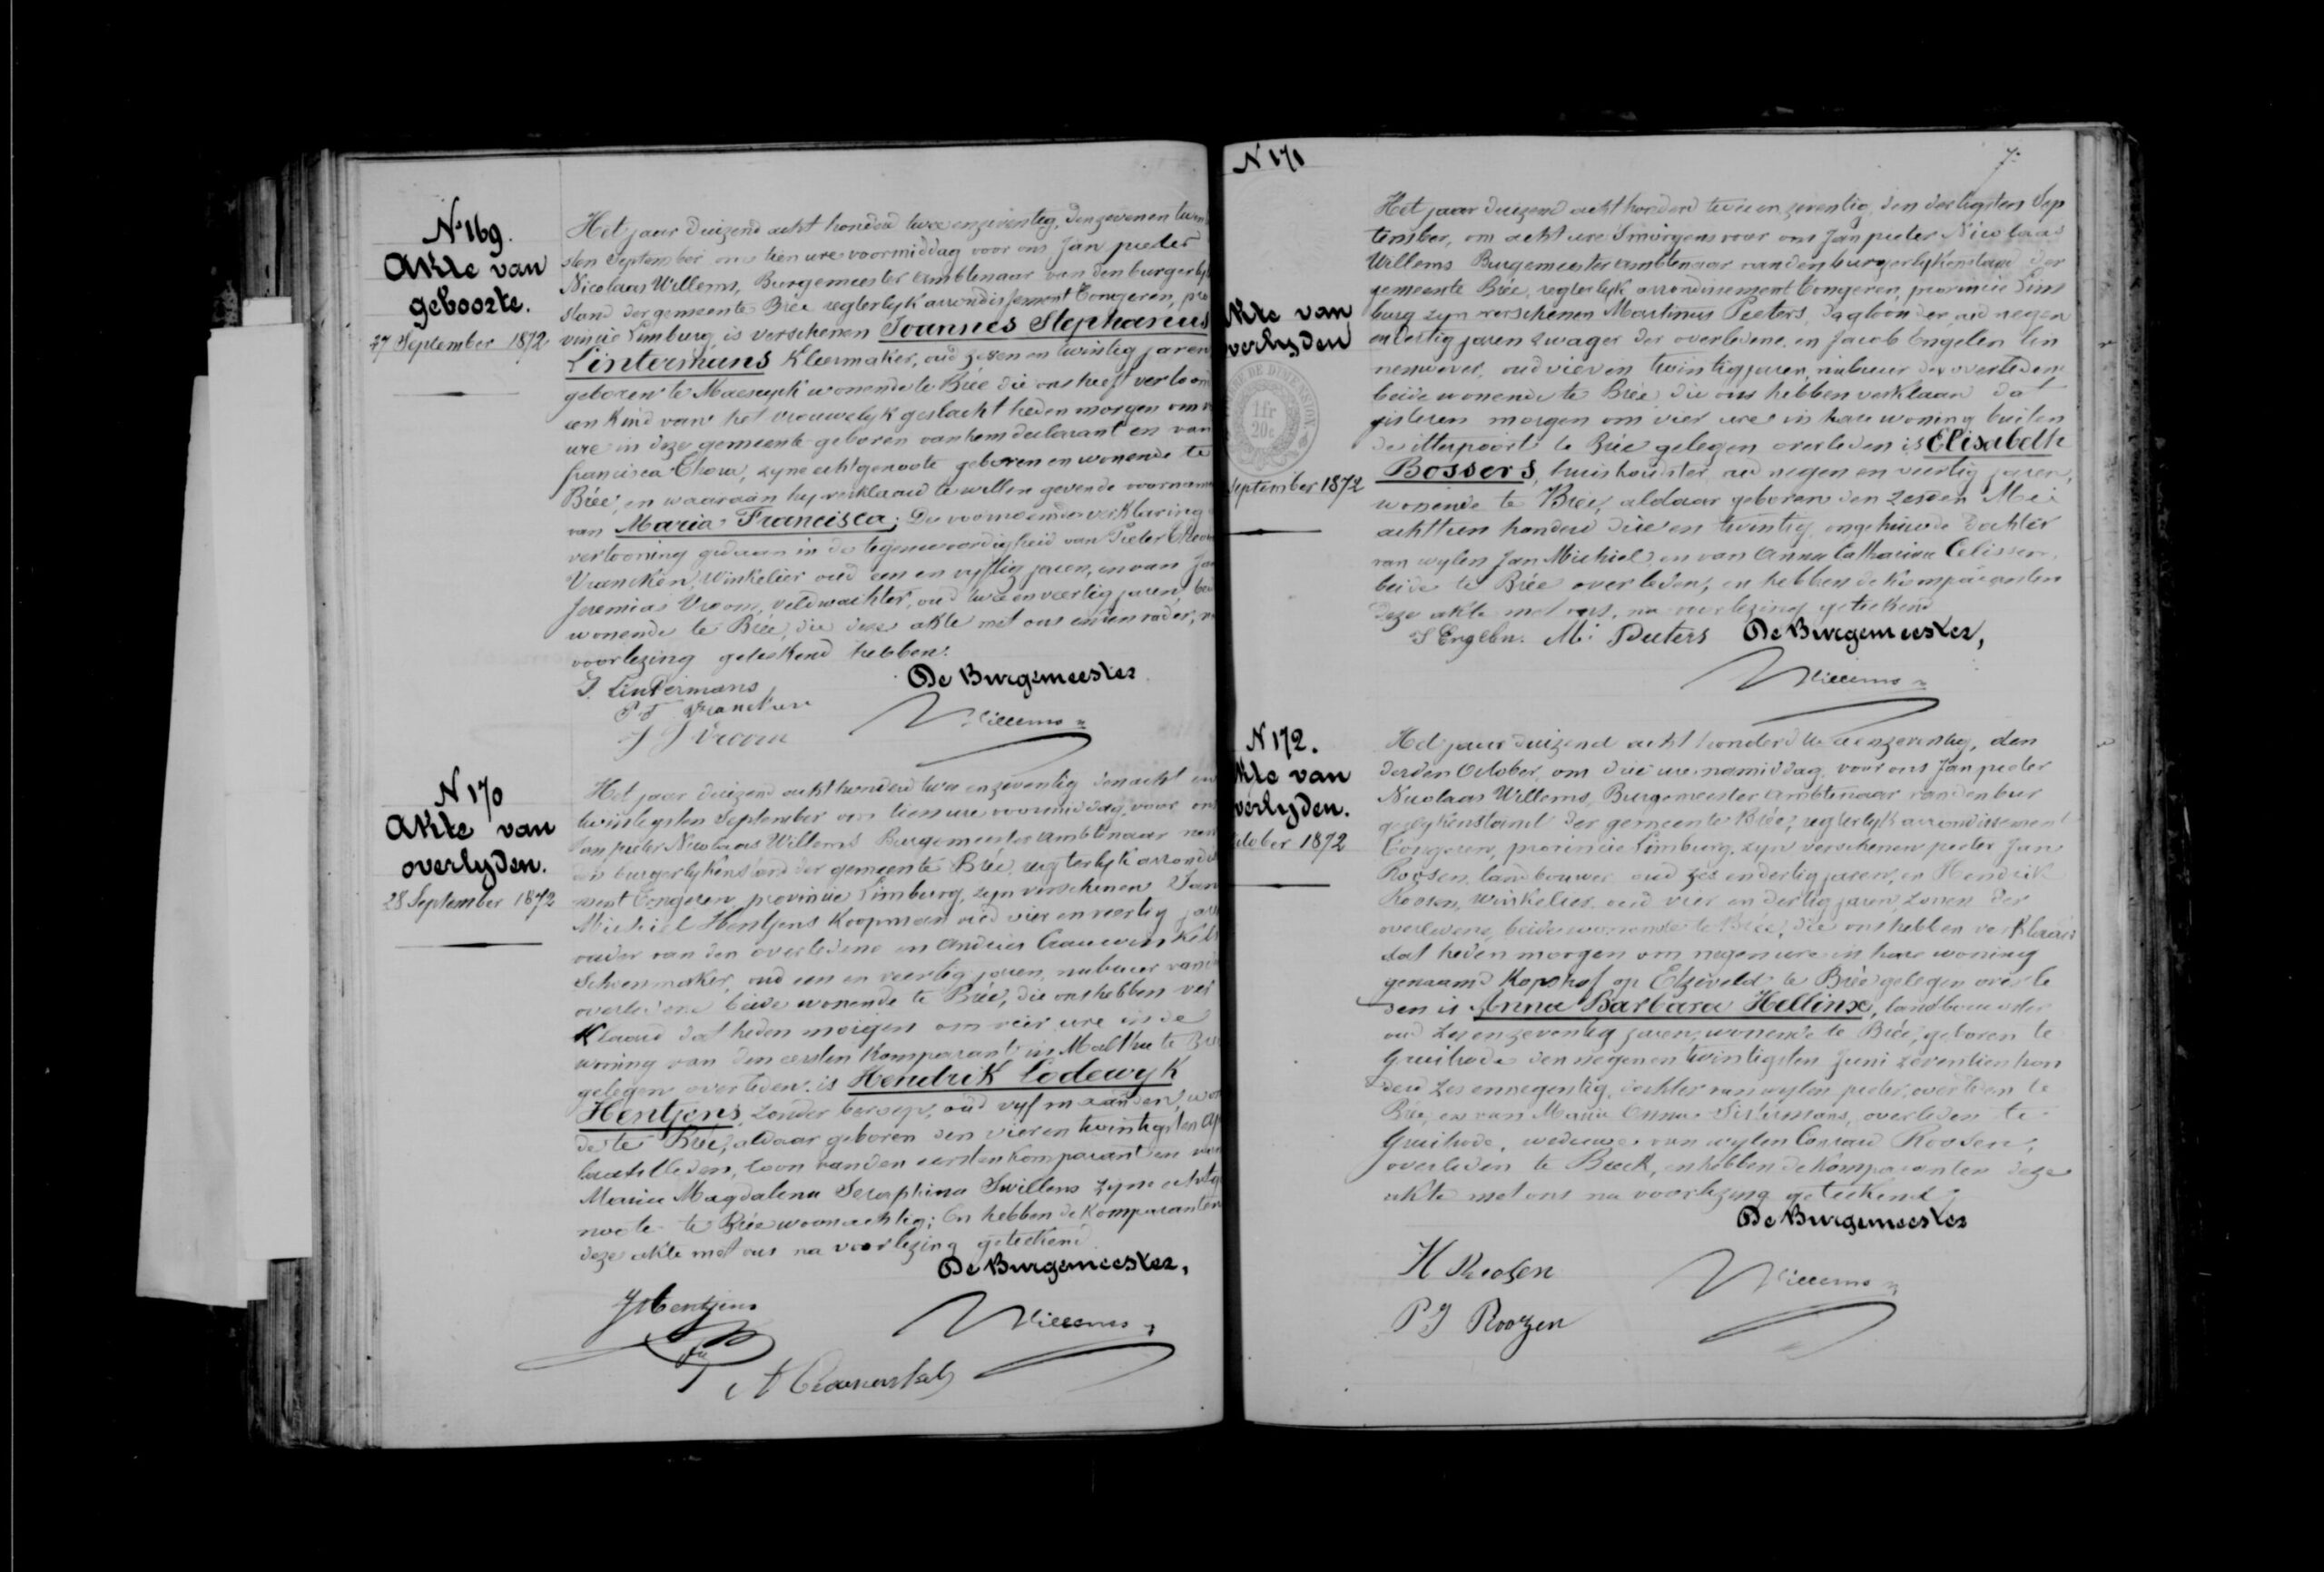 N 169.
Akte van
geboorte.
27 September 1872
Het jaar duizend acht honderd twee en zeventig, den zeven en twin
sten September om tien ure voormiddag voor ons Jan pieter
Nicolaas Willems, Burgemeester ambtenaar van den burgerly
stand der gemeente Brée regterlyk arrondissement Tongeren, pro
vincie Limburg, is verschenen Joannes Stephanus
Lintermans Kleermaker, oud zeven en twintig jaren
geboren te Maeseyck wonende te Brée die ons heeft vertoon
een Kind van het vrouwelyk geslacht heden morgen om
ure in deze gemeente geboren van hem declarant en van
francisca Theou, zyne echtgenoote geboren en wonende te
Brée, en waaraan hy verklaard te willen gevende voorname
van Maria Francisca; De voornoemde verklaring
vertooning gedaan in de tegenwoordigheid van Pieter
Vrancken, Winkelier oud een en vyftig jaren, en van Jan
Jeremias Vroom, veldwachter, oud twee en veertig jaren, bei
wonende te Brée, die deze akte met ons en den vader, n
voorlezing geteekend hebben.
De Burgemeester
J. Lintermans
P. Vrancken
J J Vroom
Willems
N 170
Akte van
overlyden.
28 September 1872
Het jaar duizend acht honderd twee en zeventig den acht en
twintigsten September om tien ure voormiddag, voor ons
Jan pieter Nicolaas Willems Burgemeester ambtenaar van
den burgerlykenstand der gemeente Brée, regterlyk arrondis
ment Tongeren, provincie Limburg, zyn verschenen Jan
Michiel Hentjens Koopman oud vier en veertig jare
vader van den overledene en Andries
Schoenmaker, oud een en veertig jaren, nabuur van
overledene beide wonende te Brée, die ons hebben ver
klaard dat heden morgen om vier ure in de
woning van den eersten Komparant in te Bree
gelegen overleden is Hendrik Lodewyk
Hentjens, zonder beroep, oud vyf maanden, won
de te Brée, aldaar geboren den vier en twintigsten Ap
laatstleden, zoon van den eersten Komparant en van
Maria Magdalena Seraphina Swillens zyne echtge
noote te Brée woonachtig; En hebben de Komparanten
deze akte met ons na voorlezing geteekend
De Burgemeester,
JM Hentjens
Willems
N 171
7
Akte van
verlyden
September 1872
Het jaar duizend acht honderd twee en zeventig, den dertigsten Sep
tember, om acht ure smorgens voor ons Jan pieter Nicolaas
Willems Burgemeester ambtenaar van den burgerlykenstand der
gemeente Brée, regterlyk arrondissement Tongeren, provincie Lim
burg zyn verschenen Martinus Peeters, dagloonder, oud negen
en dertig jaren zwager der overledene en Jacob Engelen lin
nenwever, oud vier en twintig jaren, nabuur der overledene
beide wonende te Brée die ons hebben verklaard dat
gisteren morgen om vier ure in hare woning buiten
de itterpoort te Brée gelegen overleden is Elisabeth
Bossers, huishoudster, oud negen en veertig jaren,
wonende te Brée, aldaar geboren den zesden Mei
achttien honderd drie en twintig, ongehuwde dochter
van wylen Jan Michiel en van Anna Catharina Celissen,
beide te Brée overleden, en hebben de Komparanten
deze akte met ons, na voorlezing geteekend
J Engelen. M. Peeters De Burgemeester,
Willems
1fr
20c
N 172.
Akte van
verlyden.
October 1872
Het jaar duizend acht honderd twee en zeventig, den
derden October, om drie ure namiddag, voor ons Jan pieter
Nicolaas Willems, Burgemeester ambtenaar van den bur
gerlykenstand der gemeente Brée, regterlyk arrondissement
Tongeren, provincie Limburg, zyn verschenen pieter Jan
Roosen, landbouwer oud zes en dertig jaren, en Hendrik
Roosen, Winkelier, oud vier en dertig jaren, zonen der
overledene, beide wonende te Brée, die ons hebben verklaard
dat heden morgen om negen ure in hare woning
genaamd Kopshof op Etzeveld te Brée gelegen overle
den is Anna Barbara Hellinx, landbouwster
oud zes en zeventig jaren, wonende te Brée, geboren te
Gruitrode den negen en twintigsten Juni zeventien hon
derd zes en negentig, dochter van wylen pieter, overleden te
Brée, en van Maria Anna overleden te
Gruitrode, weduwe van wylen Conrard Roosen,
overleden te Beek, en hebben de Komparanten deze
akte met ons na voorlezing geteekend;
De Burgemeester
H Roosen
P J Roozen
Willems